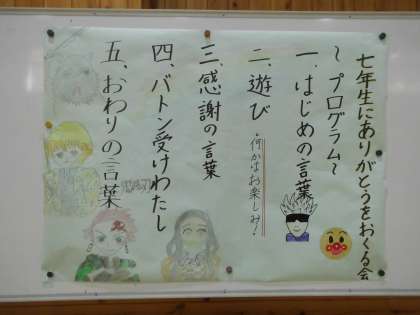 七年生にありがとうをおくる会
～プログラム～
一、はじめの言葉
二、遊び
何かはお楽しみ！
三、感謝の言葉
四、バトン受けわたし
五、おわりの言葉